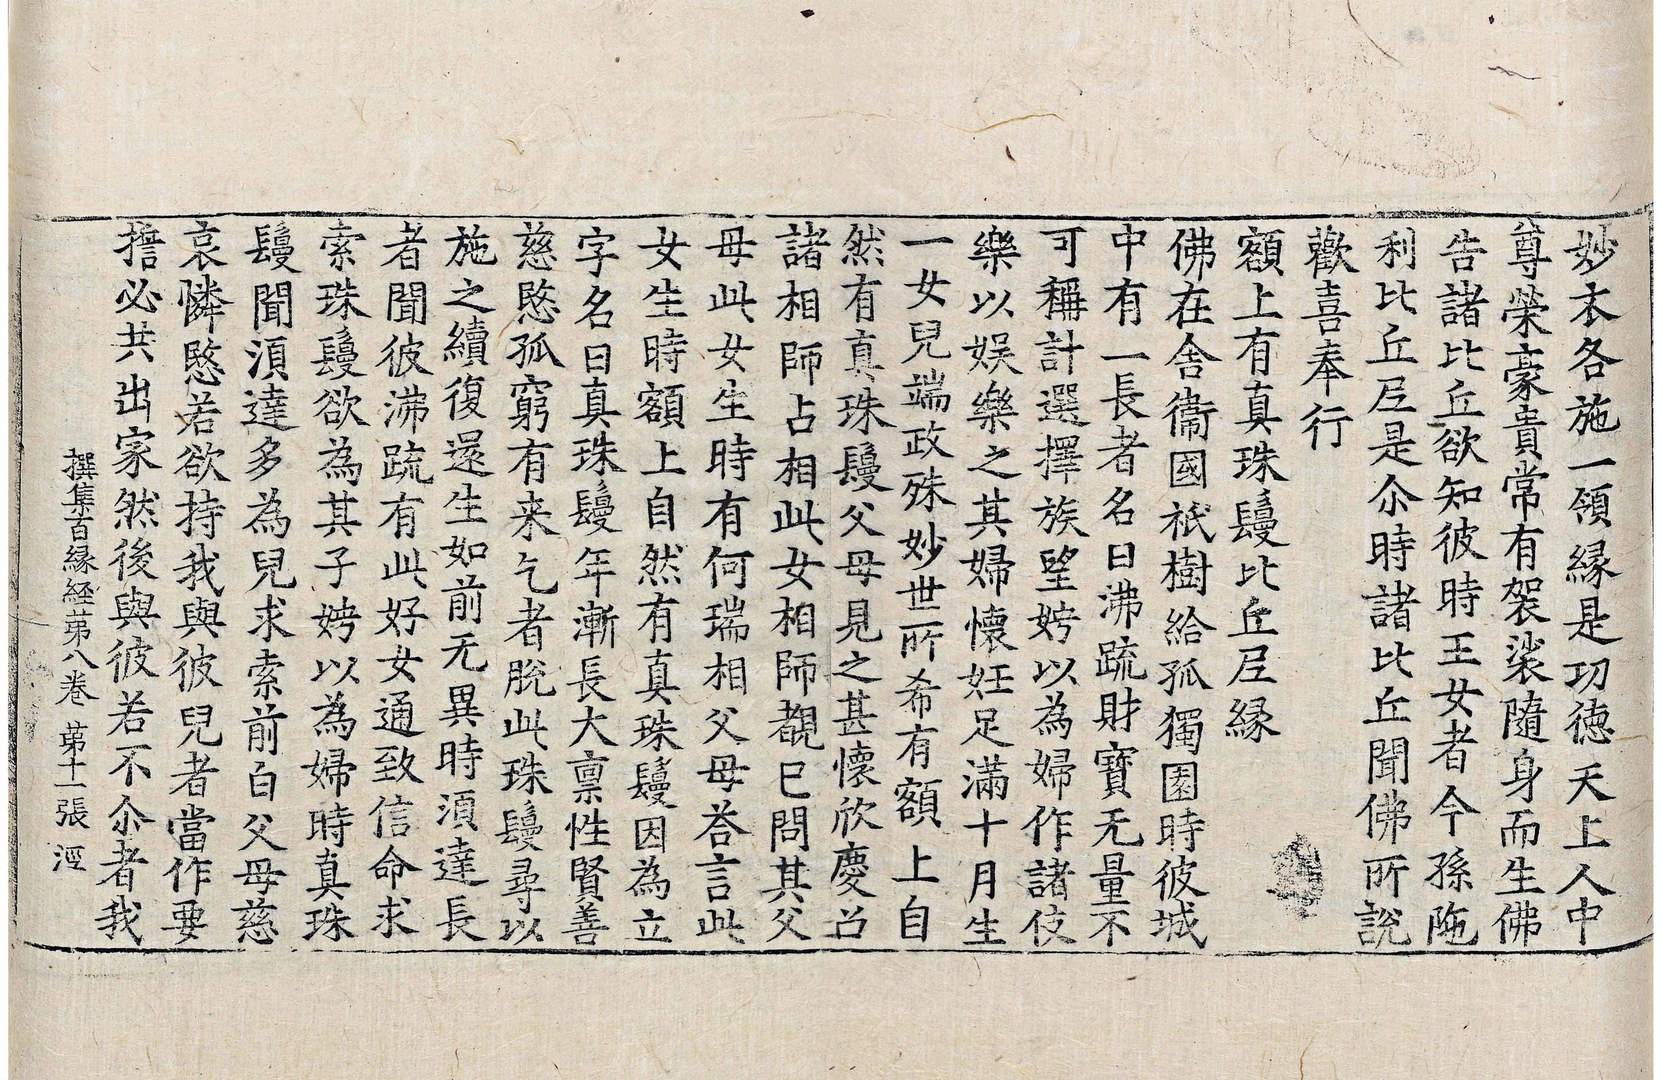 妙衣各施一領縁是功徳天上人中
尊榮豪貴常有袈裟隨身而生佛
告諸比丘欲知彼時王女者今孫陁
利比丘尼是尒時諸比丘聞佛所說
歡喜奉行
額上有真珠鬘比丘尼縁
佛在舍衞國祇樹給孤獨園時彼城
中有一長者名曰沸疏財寶无量不
可稱計選擇族望娉以為婦作諸伎
樂以娛樂之其婦懷妊足滿十月生
一女兒端政殊妙世所希有額上自
然有真珠鬘父母見之甚懷欣慶召
諸相師占相此女相師覩已問其父
母此女生時有何瑞相父母荅言此
女生時額上自然有真珠鬘因為立
字名曰真珠鬘年漸長大禀性賢善
慈愍孤窮有来乞者脫此珠鬘尋以
施之續復還生如前无異時湏達長
者聞彼沸疏有此好女通致信命求
索珠鬘欲為其子娉以為婦時真珠
鬘聞湏達多為兒求索前白父母慈
哀憐愍若欲持我與彼兒者當作要
擔必共出家然後與彼若不尒者我
撰集百縁経苐八卷 苐十一張 涇